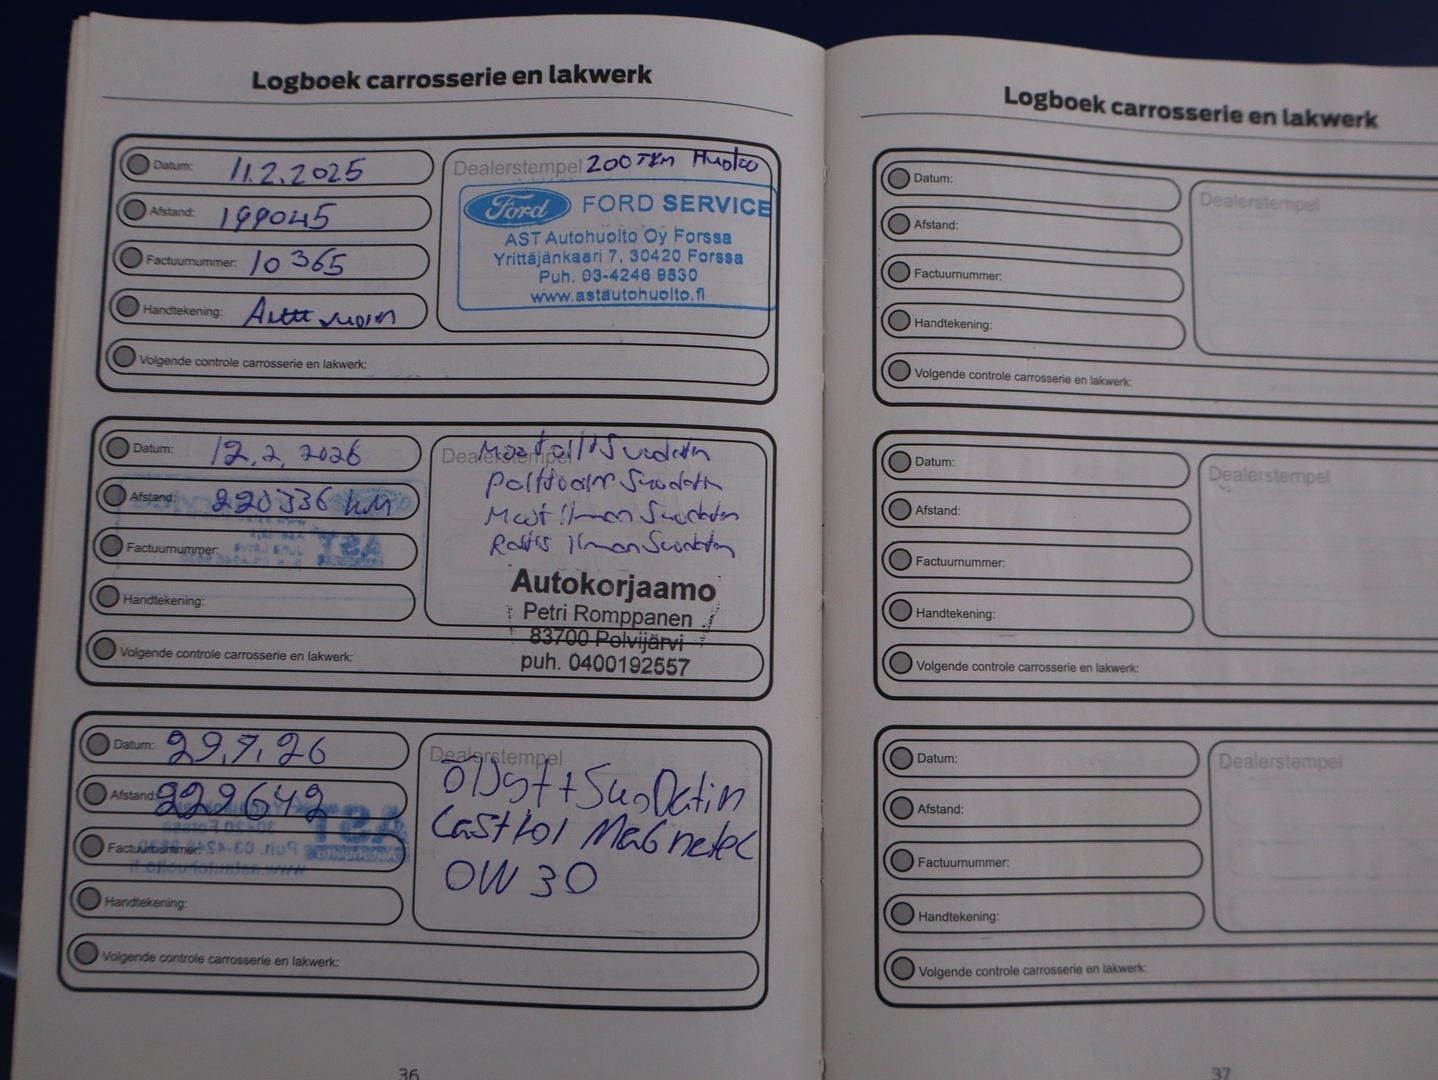 Logboek carrosserie en lakwerk
Datum: 11.2.2025
Afstand: 199045
Factuurnummer: 10365
Handtekening:
Dealerstempel 200 TKm Huolto
Ford FORD SERVICE
AST Autohuolto Oy Forssa
Yrittäjänkaari 7, 30420 Forssa
Puh. 03-4246 9830
www.astautohuolto.fi
Volgende controle carrosserie en lakwerk:
Datum: 12.2.2026
Afstand: 220336 KM
Factuurnummer:
Handtekening:
Dealerstempel
Suodatin
Suodatin
Suodatin
Suodatin
Autokorjaamo
Petri Romppanen
83700 Polvijärvi
puh. 0400192557
Volgende controle carrosserie en lakwerk:
Datum: 29.7.26
Afstand: 229642
Factuurnummer:
Handtekening:
Dealerstempel
ÖlJyt + SuoDatin
CastroL MaGnetec
0W30
Volgende controle carrosserie en lakwerk:
36
Logboek carrosserie en lakwerk
Datum:
Afstand:
Factuurnummer:
Handtekening:
Dealerstempel
Volgende controle carrosserie en lakwerk:
Datum:
Afstand:
Factuurnummer:
Handtekening:
Dealerstempel
Volgende controle carrosserie en lakwerk:
Datum:
Afstand:
Factuurnummer:
Handtekening:
Dealerstempel
Volgende controle carrosserie en lakwerk:
37